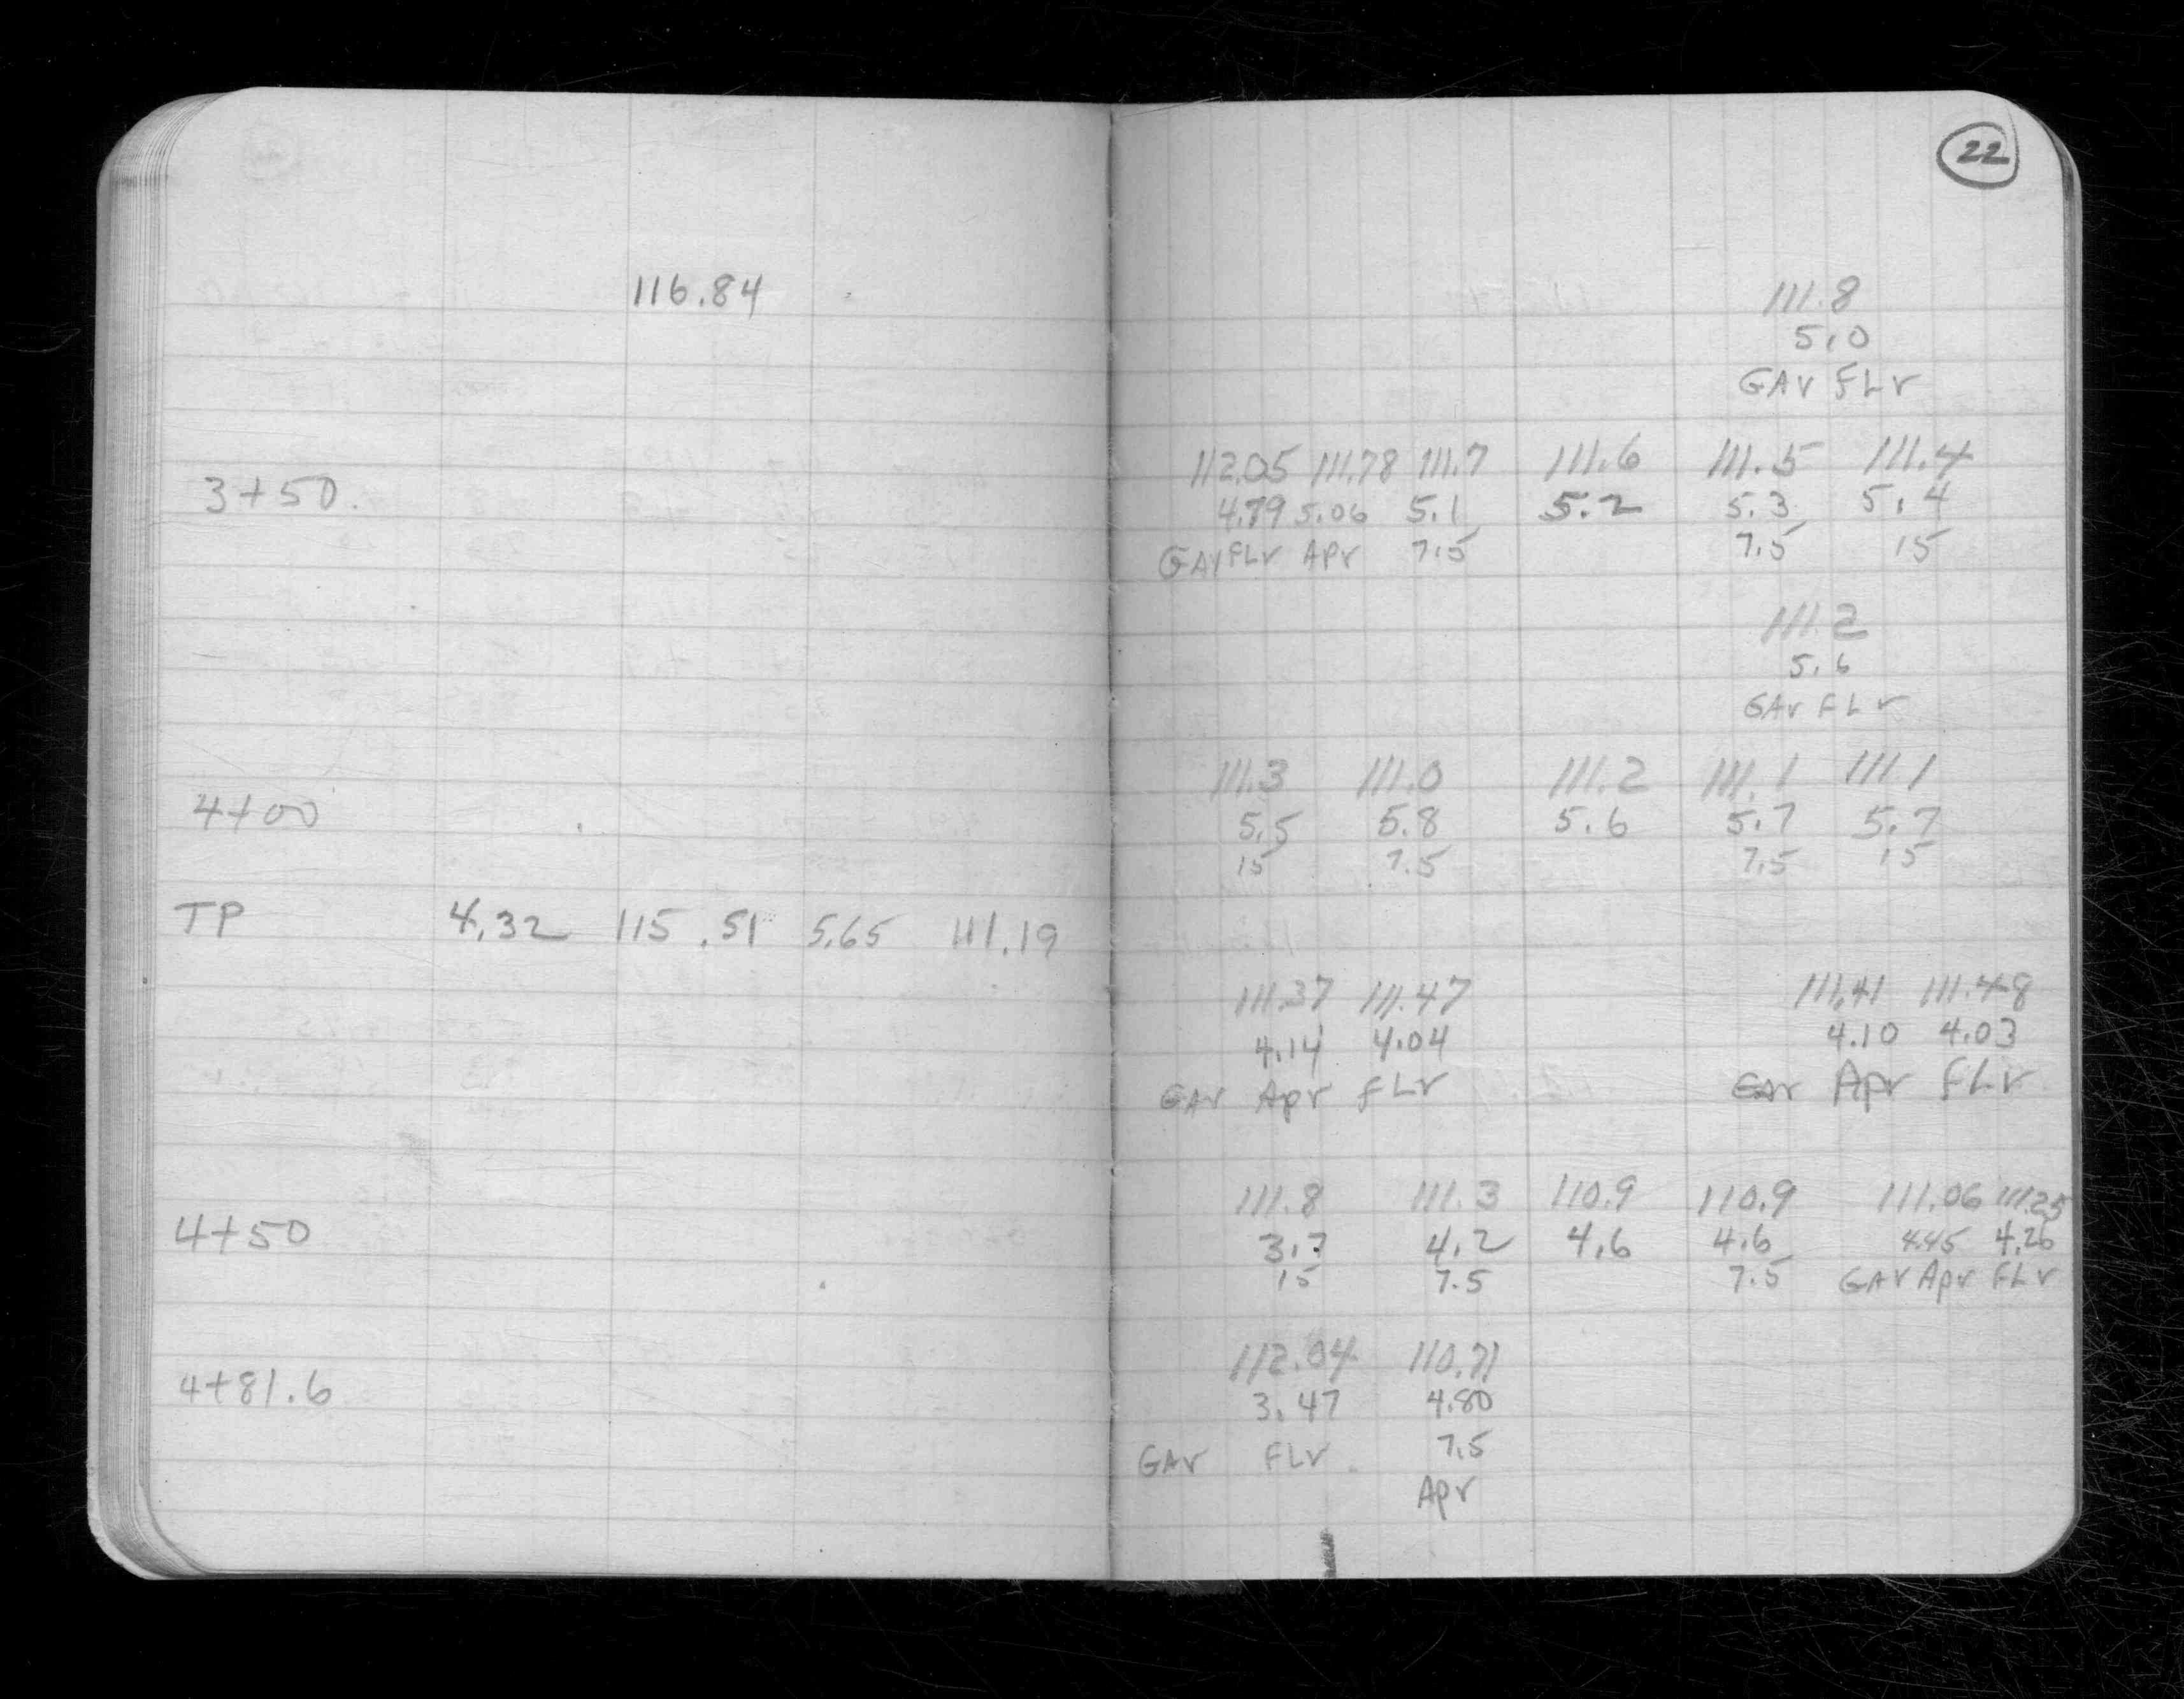 22
116.84 111.8
5.0
GAr FLr
112.05 111.78 111.7 111.6 111.5 111.4
3+50 4.79 5.06 5.1 5.2 5.3 5.4
GAr FLr Apr 7.5 7.5 15
111.2
5.6
GAr FLr
111.3 111.0 111.2 111.1 111.1
4+00 5.5 5.8 5.6 5.7 5.7
15 7.5 7.5 15
TP 4.32 115.51 5.65 111.19
111.37 111.47 111.41 111.48
4.14 4.04 4.10 4.03
GAr Apr FLr GAr Apr FLr
111.8 111.3 110.9 110.9 111.06 111.25
4+50 3.7 4.2 4.6 4.6 4.45 4.26
15 7.5 7.5 GAr Apr FLr
112.04 110.71
4+81.6 3.47 4.80
GAr FLr 7.5
Apr